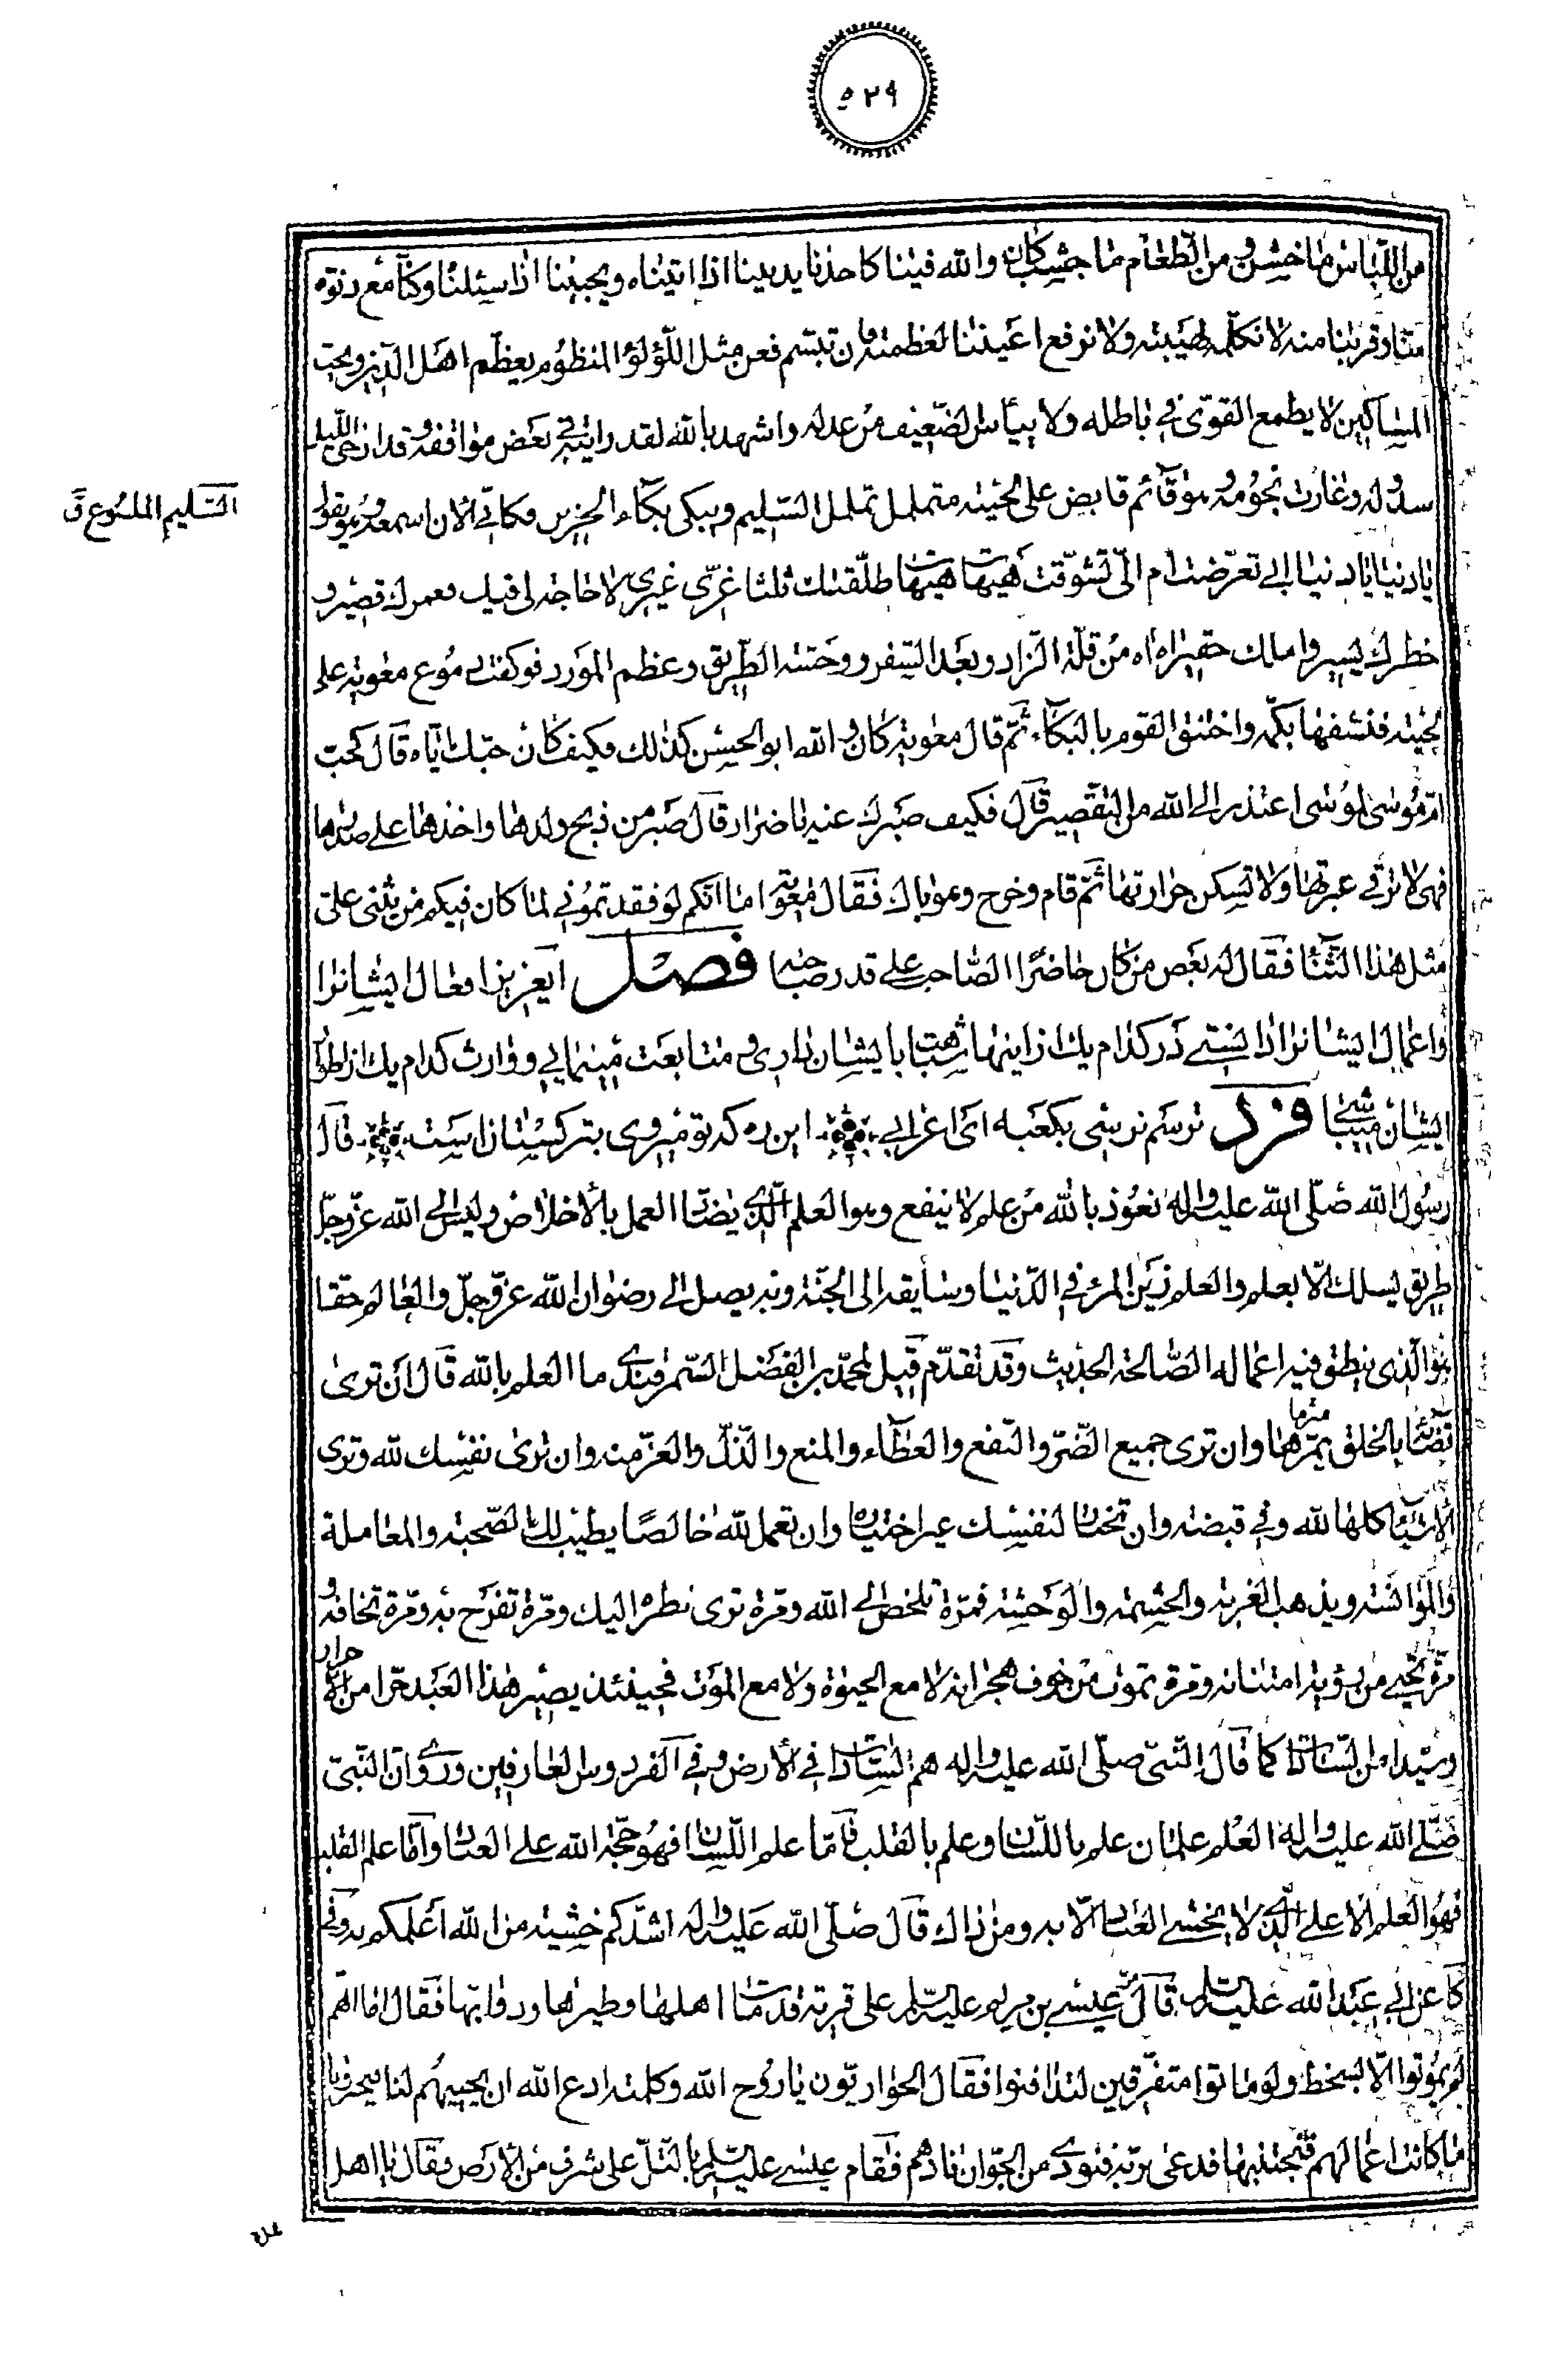 ٥٢٩
من اللباس ما خشن و من الطعام ما جشب كان والله فينا كاحدنا يدنينا اذا اتيناه و يجيبنا اذا سئلنا و كنا مع دنوه
منا و قربنا منه لا نكلمه لهيبته ولا نرفع اعيننا لعظمته فان تبسم فعن مثل اللؤلؤ المنظوم يعظم اهل الدين و يحب
المساكين لا يطمع القوى فى باطله ولا ييأس الضعيف من عدله و اشهد بالله لقد رايته فى بعض مواقفه و قد ارخى الليل
سدوله و غارت نجومه و هو قائم قابض على لحيته متململ تململ السليم و يبكى بكاء الحزين فكانى الان اسمعه و هو يقول
السليم الملسوع ق
يا دنيا يا دنيا الى تعرضت ام الى تشوقت هيهات هيهات طلقتك ثلثا غرى غيرى لا حاجة لى فيك فعمرك قصير و
خطرك يسير و املك حقير اه اه من قلة الزاد و بعد السفر و وحشة الطريق و عظم المورد فوكفت دموع معوية على
لحيته فنشفها بكمه و اختنق القوم بالبكاء ثم قال معوية كان والله ابو الحسن كذلك فكيف كان حبك اياه قال كحب
ام موسى لموسى اعتذر الى الله من التقصير قال فكيف صبرك عنه يا ضرار قال صبر من ذبح ولدها واحدها على صدرها
فهى لا ترقى عبرتها ولا تسكن حرارتها ثم قام و خرج و هو باك فقال معوية اما انكم لو فقدتمونى لما كان فيكم من يثنى على
مثل هذا الثناء فقال له بعض من كان حاضرا الصاحب على قدر صاحبه فصل ايعزيز افعال ايشانرا
و اعمال ايشانرا دانستى در كدام يك از اينها شباهت بايشان دارى و متابعت مينمايى و وارث كدام يك از اطوار
ايشان ميباشى فرد ترسم نرسى بكعبه اى اعرابى اين ره كه تو ميروى بتركستان است قال
رسول الله صلى الله عليه واله نعوذ بالله من علم لا ينفع و هو العلم الذى يضاد العمل بالاخلاص و ليس الى الله عز وجل
طريق يسلك الا بعلم و العلم زين المرء فى الدنيا و سايقه الى الجنة و به يصل الى رضوان الله عز وجل و العالم حقا
هو الذى ينطق فيه اعماله الصالحة الحديث و قد تقدم قيل لمحمد بن الفضل السمرقندى ما العلم بالله قال ان ترى
قضائه بالخلق مبرما و ان ترى جميع الضر و النفع و العطاء و المنع و الذل و العز منه و ان ترى نفسك لله و ترى
الاشياء كلها لله و فى قبضته و ان تختار لنفسك غير اختياره و ان تعمل لله خالصا يطيب لك الصحبة و المعاملة
و المؤانسة و يذهب الغربة و الحشمة و الوحشة فمرة تلخص الى الله و مرة ترى نظره اليك و مرة تفرح به و مرة تخافه و
مرة تحيى من رؤية امتنانه و مرة تموت من خوف هجرانه لا مع الحيوة ولا مع الموت فحينئذ يصير هذا العبد حرا من الاحرار
و سيدا من السادات كما قال النبى صلى الله عليه واله هم السادات فى الارض و فى الفردوس العارفين و روى ان النبى
صلى الله عليه واله العلم علمان علم باللسان و علم بالقلب فاما علم اللسان فهو حجة الله على العباد و اما علم القلب
فهو العلم الاعلى الذى لا يخشى العباد الا به و من ذاك قال صلى الله عليه واله اشدكم خشية من الله اعلمكم به و فى
كا عن ابى عبد الله عليه السلم قال مر عيسى بن مريم عليه السلم على قرية قد مات اهلها و طيرها و دوابها فقال اما انهم
لم يموتوا الا بسخط ولو ماتوا متفرقين لتدافنوا فقال الحواريون يا روح الله و كلمته ادع الله ان يحييهم لنا فيخبرونا
ما كانت اعمالهم فنجتنبها فدعى ربه فنودى من الجو ان نادهم فقام عيسى عليه السلم بالليل على شرف من الارض فقال يا اهل